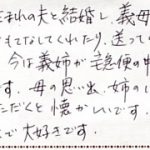 まれの夫と結婚し、義母
もてなしてくれたり、送って
今は義姉が宅急便の中
す。母の思い出、姉の
ただくと懐かしいです
で大好きです。